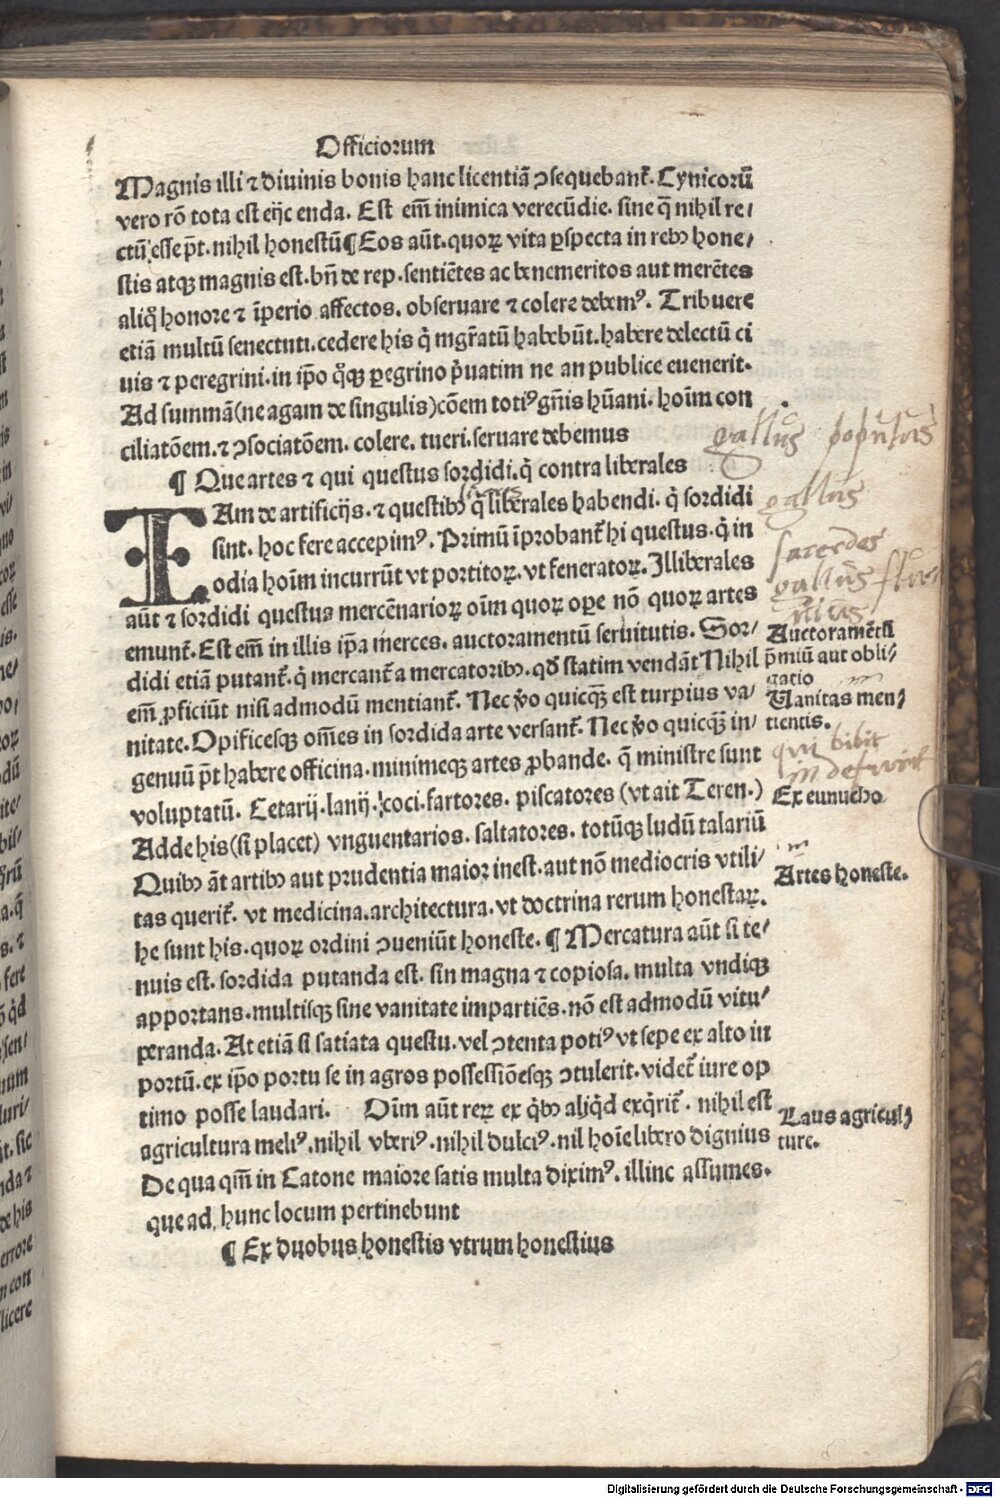 Officiorum
Magnis illi ⁊ diuinis bonis hanc licentiā ꝯsequebant᷑. Cynicorū
vero rō tota est eijc enda. Est em̄ inimica verecūdie. sine q̄ nihil re/
ctū esse p̄t. nihil honestū ¶ Eos aūt. quoꝝ vita ꝑspecta in rebꝰ hone/
stis atqꝫ magnis est. bn̄ de rep. sentiētes ac benemeritos aut merētes
aliq̊ honore ⁊ īperio affectos. obseruare ⁊ colere debemꝰ. Tribuere
etiā multū senectuti. cedere his q̇ mgr̄atū habebūt. habere delectū ci
uis ⁊ peregrini. in ip̄o q̊qꝫ ꝑegrino p̄uatim ne an publice euenerit.
Ad summā (ne agam de singulis) cōem totiꝰ gn̄is hūani. hoīm con
ciliatōem. ⁊ ꝯsociatōem. colere. tueri. seruare debemus
¶ Que artes ⁊ qui questus sordidi. q̇ contra liberales
IAm de artificijs. ⁊ questibꝰ q̇ liberales habendi. q̇ sordidi
sint. hoc fere accepimꝰ. Primū īprobant᷑ hi questus. q̇ in
odia hoīm incurrūt vt portitoꝝ. vt feneratoꝝ. Illiberales
aūt ⁊ sordidi questus mercēnarioꝝ oīm quoꝝ oꝑe nō quoꝝ artes
emunt᷑. Est em̄ in illis ip̄a merces. auctoramentū seruitutis. Sor/
didi etiā putant᷑. q̇ mercant᷑ a mercatoribꝰ. qđ statim vendāt Nihil
em̄ ꝓficiūt nisi admodū mentiant᷑. Nec v̊o quicqꝫ est turpius va/
nitate. Opificesqꝫ om̄es in sordida arte versant᷑. Nec v̊o quicqꝫ in/
genuū p̄t habere officina. minimeqꝫ artes ꝓbande. q̄ ministre sunt
voluptatū. Cetarij. lanij. coci. fartores. piscatores (vt ait Teren.)
Adde his (si placet) vnguentarios. saltatores. totūqꝫ ludū talariū
Quibꝰ āt artibꝰ aut prudentia maior inest. aut nō mediocris vtili/
tas querit᷑. vt medicina. architectura. vt doctrina rerum honestaꝝ.
he sunt his. quoꝝ ordini ꝯueniūt honeste. ¶ Mercatura aūt si te/
nuis est. sordida putanda est. sin magna ⁊ copiosa. multa vndiqꝫ
apportans. multisqꝫ sine vanitate impartiēs. nō est admodū vitu/
peranda. At etiā si satiata questu. vel ꝯtenta potiꝰ vt sepe ex alto in
portū. ex ip̄o portu se in agros possessiōesqꝫ ꝯtulerit. videt᷑ iure op
timo posse laudari. Oīm aūt reꝝ ex q̇bꝰ aliq̇d exq̇rit᷑. nihil est
agricultura meliꝰ. nihil vberiꝰ. nihil dulciꝰ. nil hoīe libero dignius
De qua qm̄ in Catone maiore satis multa diximꝰ. illinc assumes.
que ad hunc locum pertinebunt
¶ Ex duobus honestis vtrum honestius
gallus populus
gallus
sacerdos
gallus
Auctoramētū
p̄miū aut obli/
gatio
Vanitas men/
tientis.
qui bibit
Ex eunucho
Artes honeste.
Laus agricul/
ture.
Digitalisierung gefördert durch die Deutsche Forschungsgemeinschaft - DFG